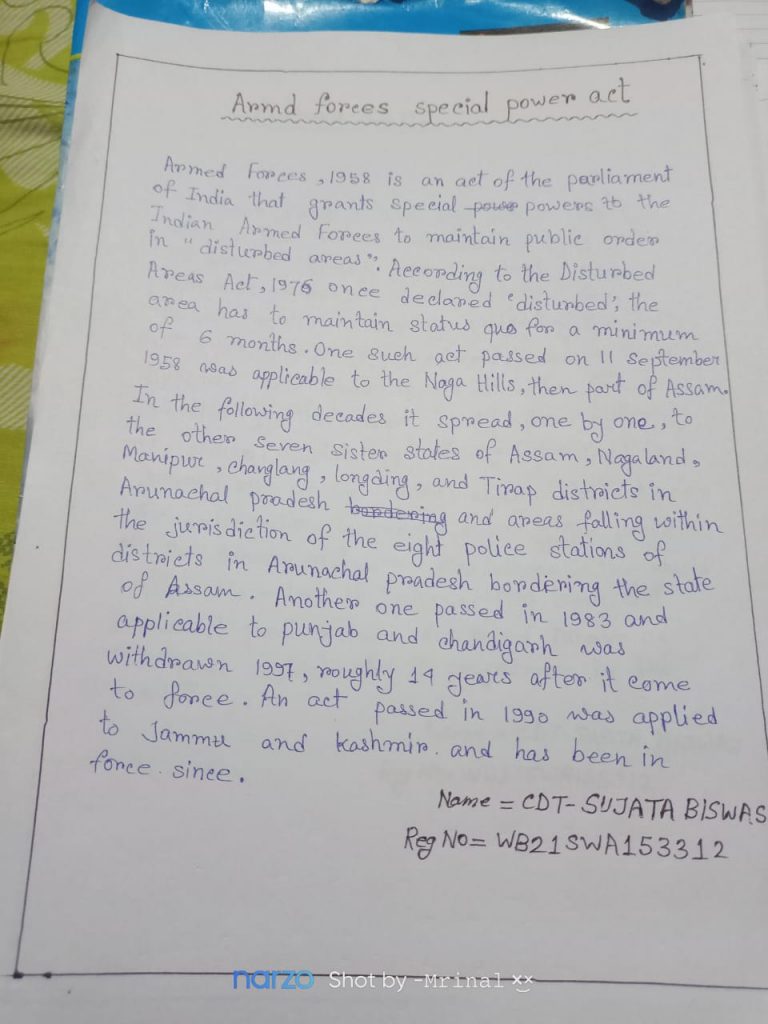 Armd forces special power act
Armed Forces, 1958 is an act of the parliament
of India that grants special power powers to the
Indian Armed Forces to maintain public order
in "disturbed areas". According to the Disturbed
Areas Act, 1976 once declared 'disturbed', the
area has to maintain status quo for a minimum
of 6 months. One such act passed on 11 September
1958 was applicable to the Naga Hills, then part of Assam.
In the following decades it spread, one by one, to
the other seven sister states of Assam, Nagaland,
Manipur, changlang, longding, and Tirap districts in
Arunachal pradesh bordering and areas falling within
the jurisdiction of the eight police stations of
districts in Arunachal pradesh bordering the state
of Assam. Another one passed in 1983 and
applicable to punjab and chandigarh was
withdrawn 1997, roughly 14 years after it come
to force. An act passed in 1990 was applied
to Jammu and kashmir. and has been in
force. since.
Name = CDT- SUJATA BISWAS
Reg No = WB21SWA153312
narzo Shot by -Mrinal